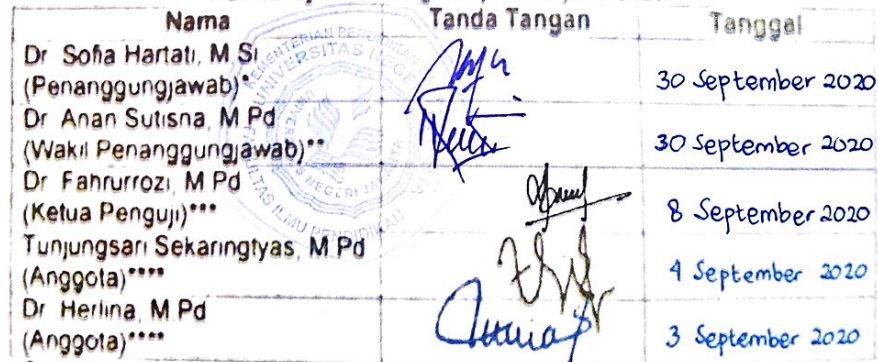 Nama Tanda Tangan Tanggal
Dr Sofia Hartati, M Si
(Penanggungjawab)* 30 September 2020
Dr Anan Sutisna, M Pd
(Wakil Penanggungjawab)** 30 September 2020
Dr Fahrurrozi, M Pd
(Ketua Penguji)*** 8 September 2020
Tunjungsari Sekaringtyas, M Pd
(Anggota)**** 4 September 2020
Dr Herlina, M Pd
(Anggota)**** 3 September 2020